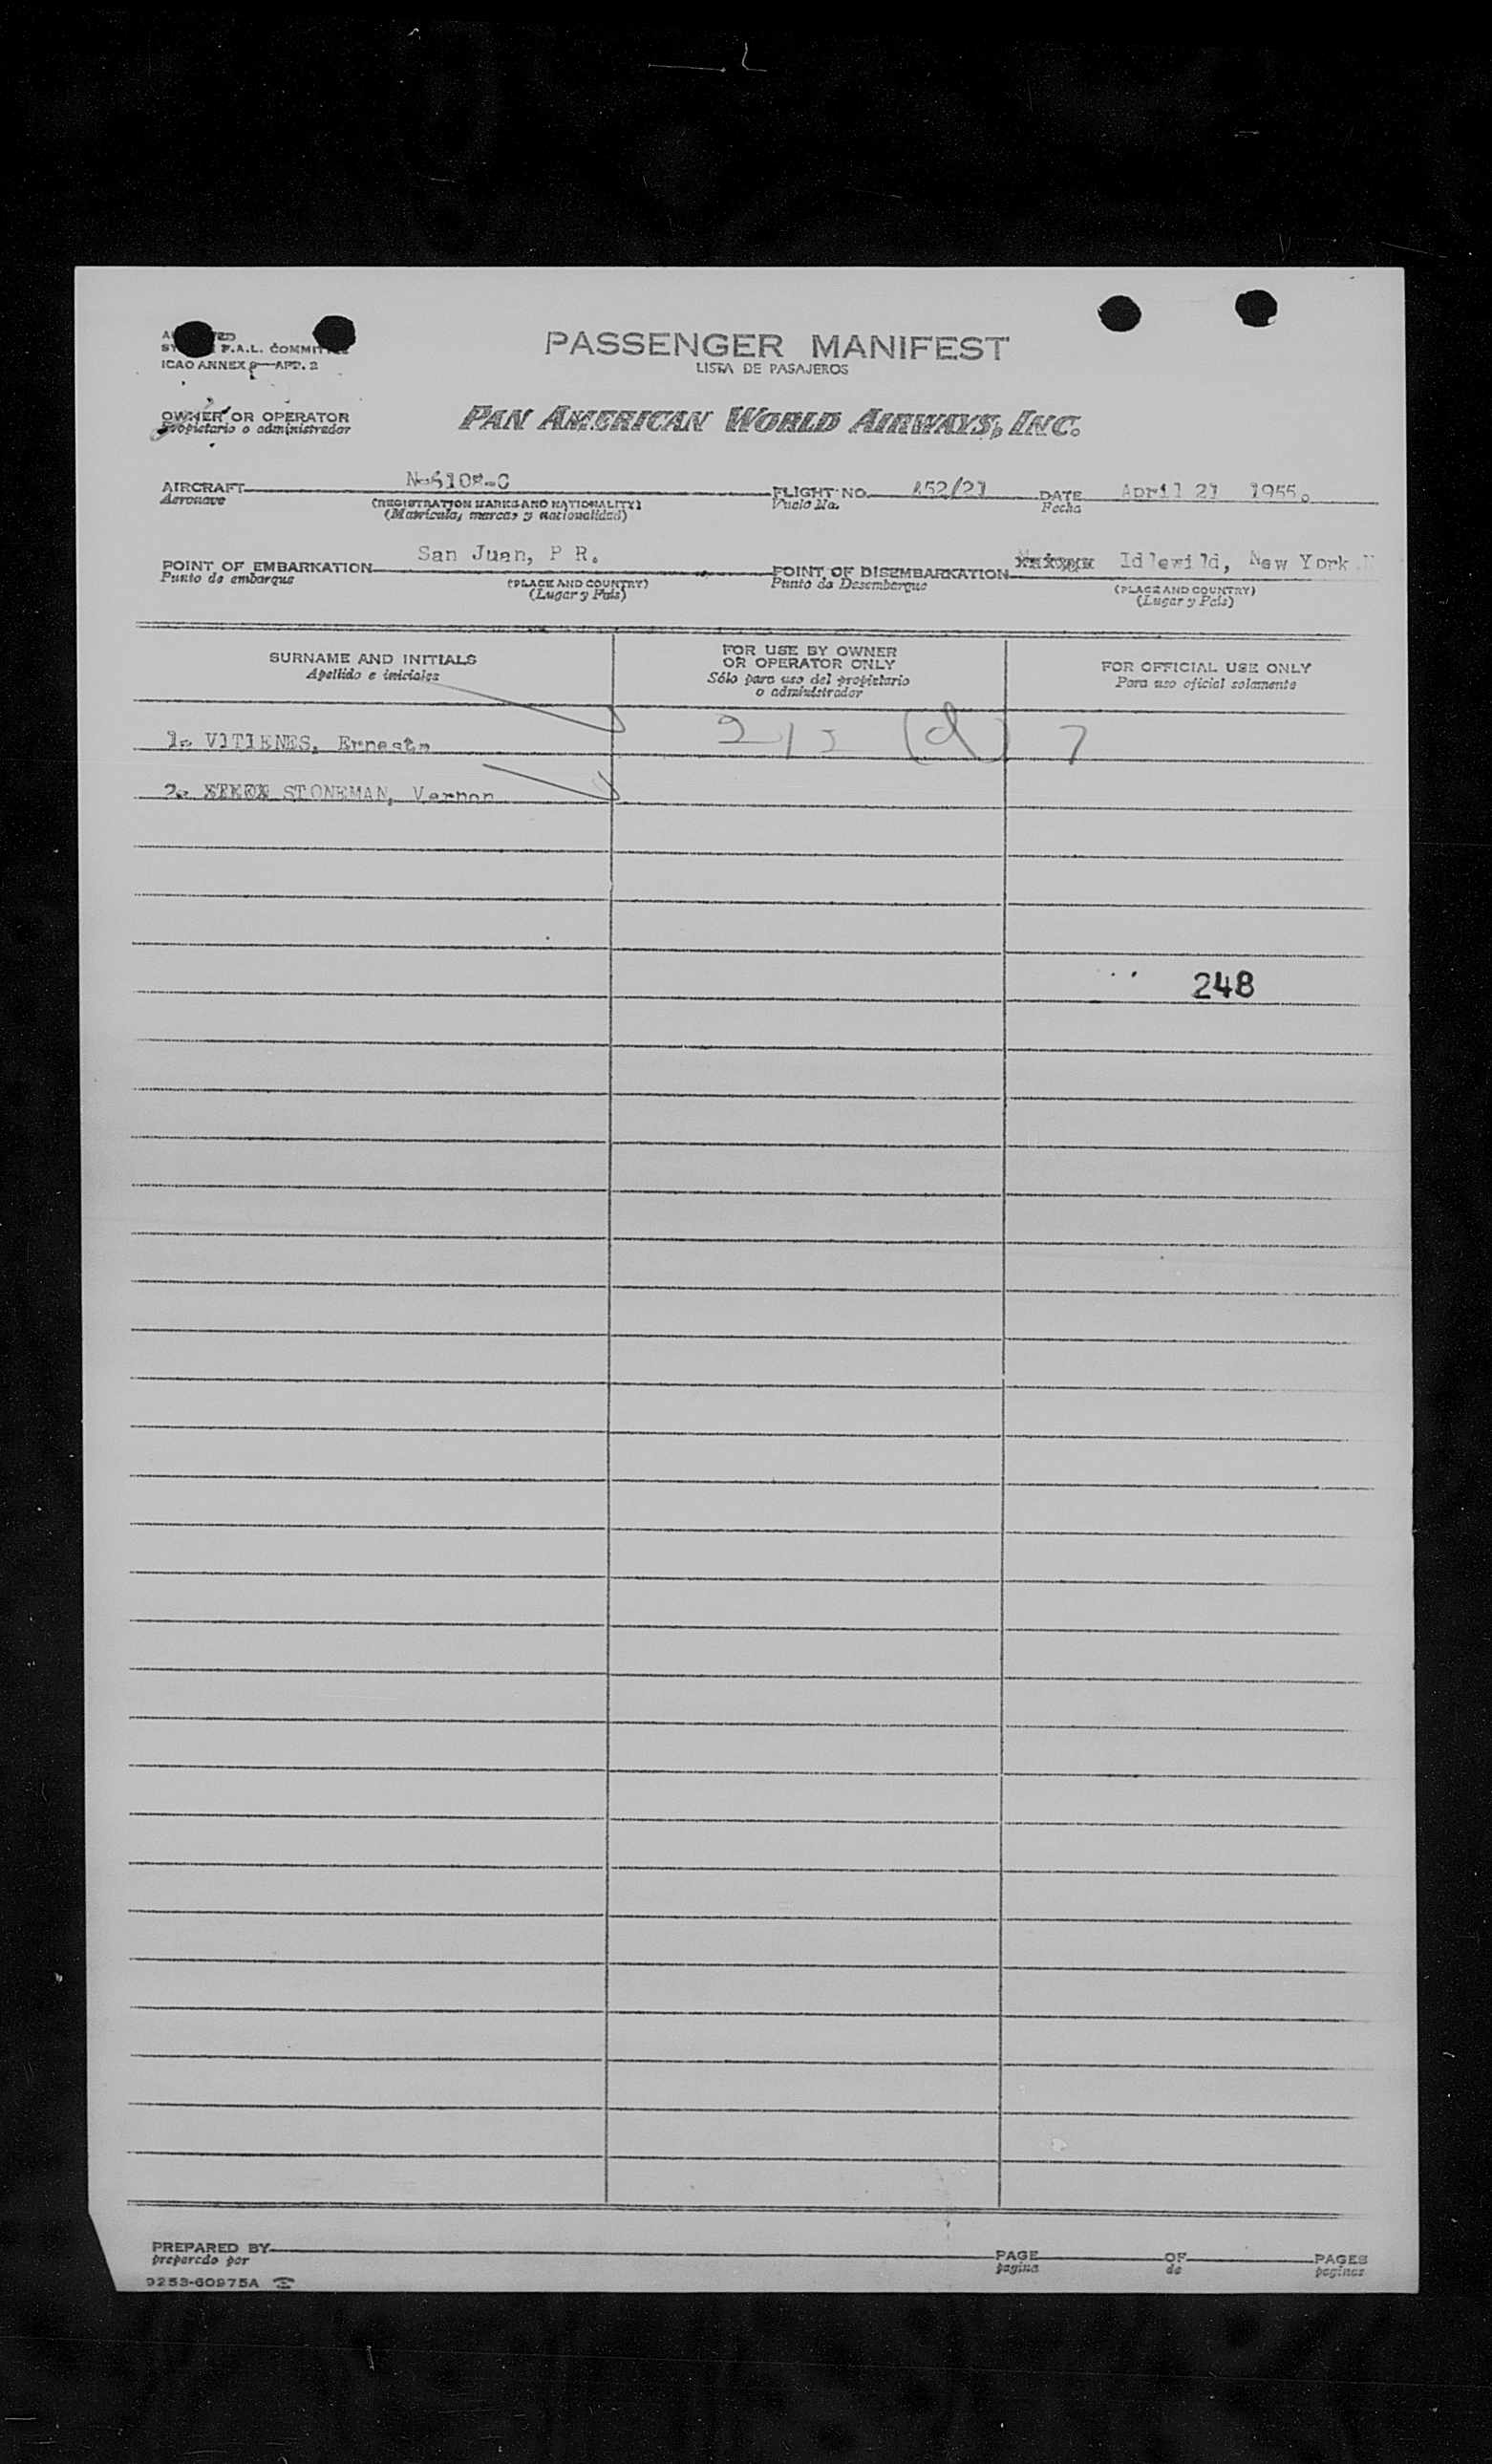 F.A.L. COMMITTEE
ICAO ANNEX 9—APP. 2
PASSENGER MANIFEST
LISTA DE PASAJEROS
OWNER OR OPERATOR
Propietario o administrador
PAN AMERICAN WORLD AIRWAYS, INC.
AIRCRAFT
Aeronave
(REGISTRATION MARKS AND NATIONALITY)
(Matricula, marcas y nacionalidad)
FLIGHT NO. 452/21
Vuelo No.
DATE April 21 1955.
Fecha
POINT OF EMBARKATION San Juan, P R.
Punto de embarque
(PLACE AND COUNTRY)
(Lugar y País)
POINT OF DISEMBARKATION Idlewild, New York
Punto de Desembarque
(PLACE AND COUNTRY)
(Lugar y País)
SURNAME AND INITIALS
Apellido e iniciales
FOR USE BY OWNER
OR OPERATOR ONLY
Sólo para uso del propietario
o administrador
FOR OFFICIAL USE ONLY
Para uso oficial solamente
1. VITIENES, Ernesto
2. STONEMAN, Vernon
248
PREPARED BY
preparedo por
PAGE
pagina
OF
de
PAGES
paginas
9253-60975A